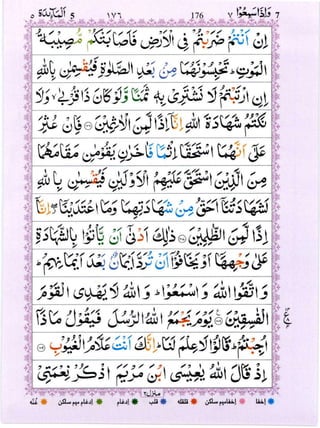 ٥ الْمَآئِدَة 5 ١٧٦ 176 وَاِذَا سَمِعُوْا ٧ 7
اِنْ اَنْتُمْ ضَرَبْتُمْ فِي الْاَرْضِ فَاَصَابَتْكُمْ مُّصِيْبَةُ
الْمَوْتِ ؕ تَحْبِسُوْنَهُمَا مِنْۢ بَعْدِ الصَّلٰوةِ فَيُقْسِمٰنِ بِاللّٰهِ
اِنِ ارْتَبْتُمْ لَا نَشْتَرِيْ بِهٖ ثَمَنًا وَّلَوْ كَانَ ذَا قُرْبٰى ۙ وَلَا
نَكْتُمُ شَهَادَةَ اللّٰهِ اِنَّاۤ اِذًا لَّمِنَ الْاٰثِمِيْنَ ۝١٠٦ فَاِنْ عُثِرَ
عَلٰۤى اَنَّهُمَا اسْتَحَقَّاۤ اِثْمًا فَاٰخَرٰنِ يَقُوْمٰنِ مَقَامَهُمَا
مِنَ الَّذِيْنَ اسْتَحَقَّ عَلَيْهِمُ الْاَوْلَيٰنِ فَيُقْسِمٰنِ بِاللّٰهِ
لَشَهَادَتُنَاۤ اَحَقُّ مِنْ شَهَادَتِهِمَا وَمَا اعْتَدَيْنَاۤ ۖ اِنَّاۤ
اِذًا لَّمِنَ الظّٰلِمِيْنَ ۝١٠٧ ذٰلِكَ اَدْنٰۤى اَنْ يَّاْتُوْا بِالشَّهَادَةِ
عَلٰى وَجْهِهَاۤ اَوْ يَخَافُوْۤا اَنْ تُرَدَّ اَيْمَانٌۢ بَعْدَ اَيْمَانِهِمْ ؕ
وَاتَّقُوا اللّٰهَ وَاسْمَعُوْا ؕ وَاللّٰهُ لَا يَهْدِي الْقَوْمَ
الْفٰسِقِيْنَ ۝١٠٨ يَوْمَ يَجْمَعُ اللّٰهُ الرُّسُلَ فَيَقُوْلُ مَاذَاۤ
اُجِبْتُمْ ؕ قَالُوْا لَا عِلْمَ لَنَا ؕ اِنَّكَ اَنْتَ عَلَّامُ الْغُيُوْبِ ۝١٠٩
اِذْ قَالَ اللّٰهُ يٰعِيْسَى ابْنَ مَرْيَمَ اذْكُرْ نِعْمَتِيْ
منزل ٢
اخفا اخفا میم ساکن قلقله قلب ادغام ادغام میم ساکن غنّه